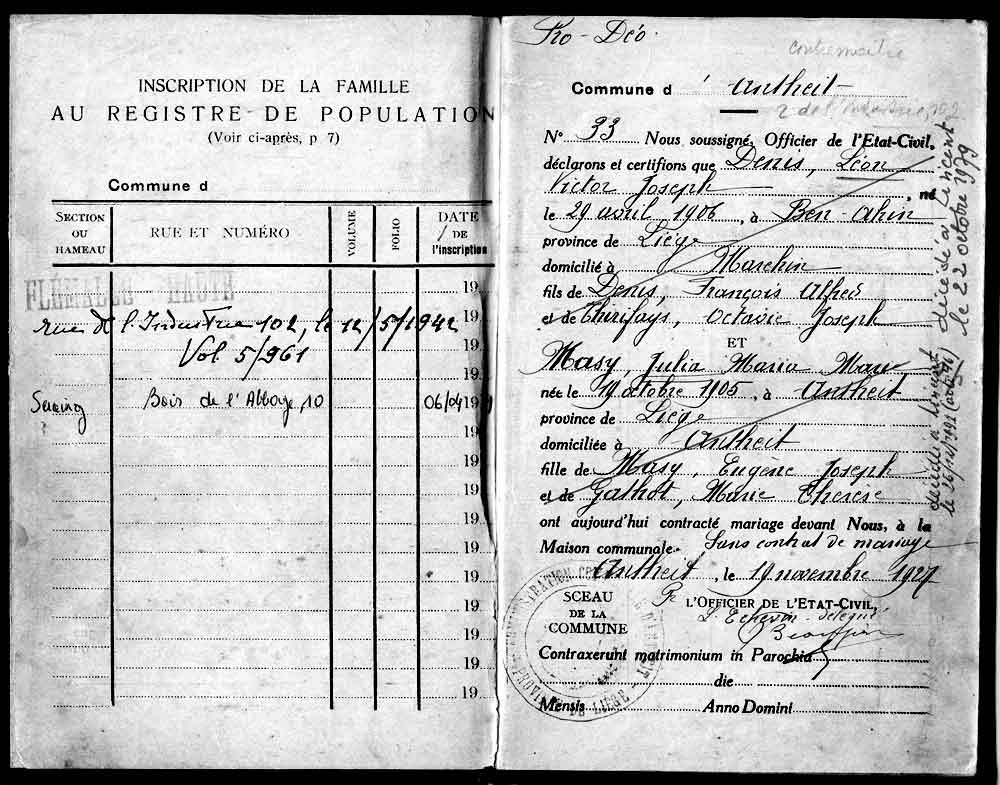 INSCRIPTION DE LA FAMILLE
AU REGISTRE DE POPULATION
(Voir ci-après, p 7)
Commune d
SECTION OU HAMEAU
RUE ET NUMÉRO
VOLUME
FOLIO
DATE DE l'inscription
19
FLÉMALLE - HAUTE
rue de l'Industrie 102, le 12/5/1942
19
Vol. 5/961
19
Seraing Bois de l'Abbaye, 10 06/04 19
19
19
19
19
19
19
19
19
19
19
19
Pro - Déo.
contremaître
Commune d'Antheit
N° 33 Nous soussigné, Officier de l'Etat-Civil,
déclarons et certifions que Denis, Léon
Victor Joseph, né
le 29 avril 1906, à Ben-Ahin
province de Liége
domicilié à Marchin
fils de Denis, François Alfred
et de Thirifays, Octavie Joseph
ET
Masy, Julia Maria
née le 19 octobre 1905, à Antheit
province de Liége
domiciliée à Antheit
fille de Masy, Eugène Joseph
et de Gathot, Marie Thérèse
ont aujourd'hui contracté mariage devant Nous, à la
Maison communale. Sans contrat de mariage
Antheit, le 19 novembre 1927
Pr L'OFFICIER DE L'ETAT-CIVIL,
L'Echevin délégué
SCEAU
DE LA
COMMUNE
PROVINCE DE LIÈGE
Contraxerunt matrimonium in Parochia
die
Mensis Anno Domini
décédé à Lincent
le 22 octobre 1979